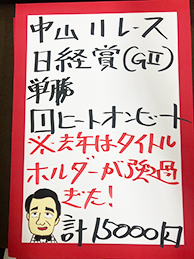 中山11レース
日経賞(GⅡ)
単勝
回ヒートオンビート
※去年はタイトル
ホルダーが強過
ぎた!
計15000円